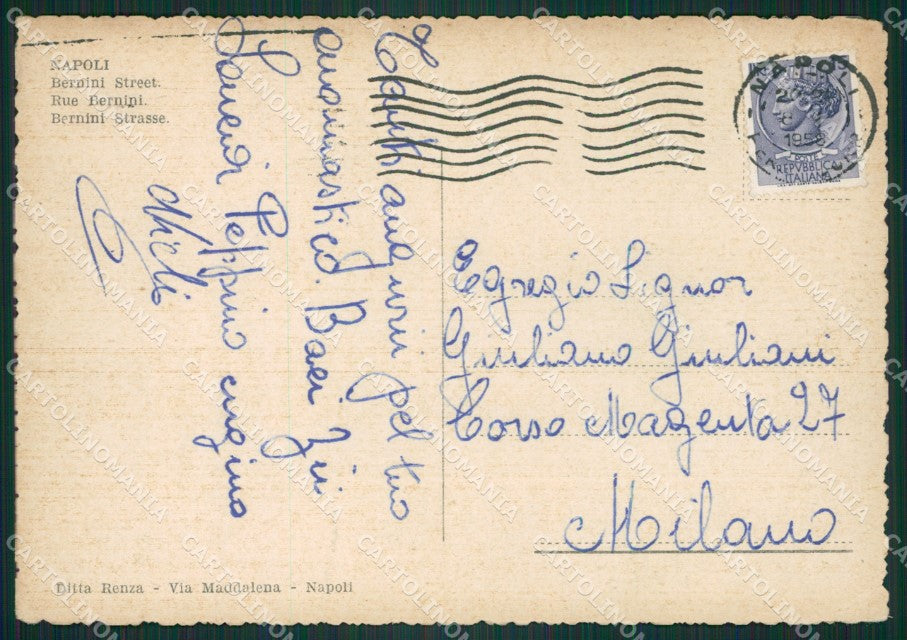 NAPOLI
Bernini Street.
Rue Bernini.
Bernini Strasse.
Tanti auguri pel tuo
onomastico. Baci Zii
Peppino cugino
NAPOLI
1958
POSTE
REPVBBLICA
ITALIANA
Egregio Signor
Giuliano Giuliani
Corso Magenta 27
Milano
Ditta Renza - Via Maddalena - Napoli
CARTOLINOMANIA